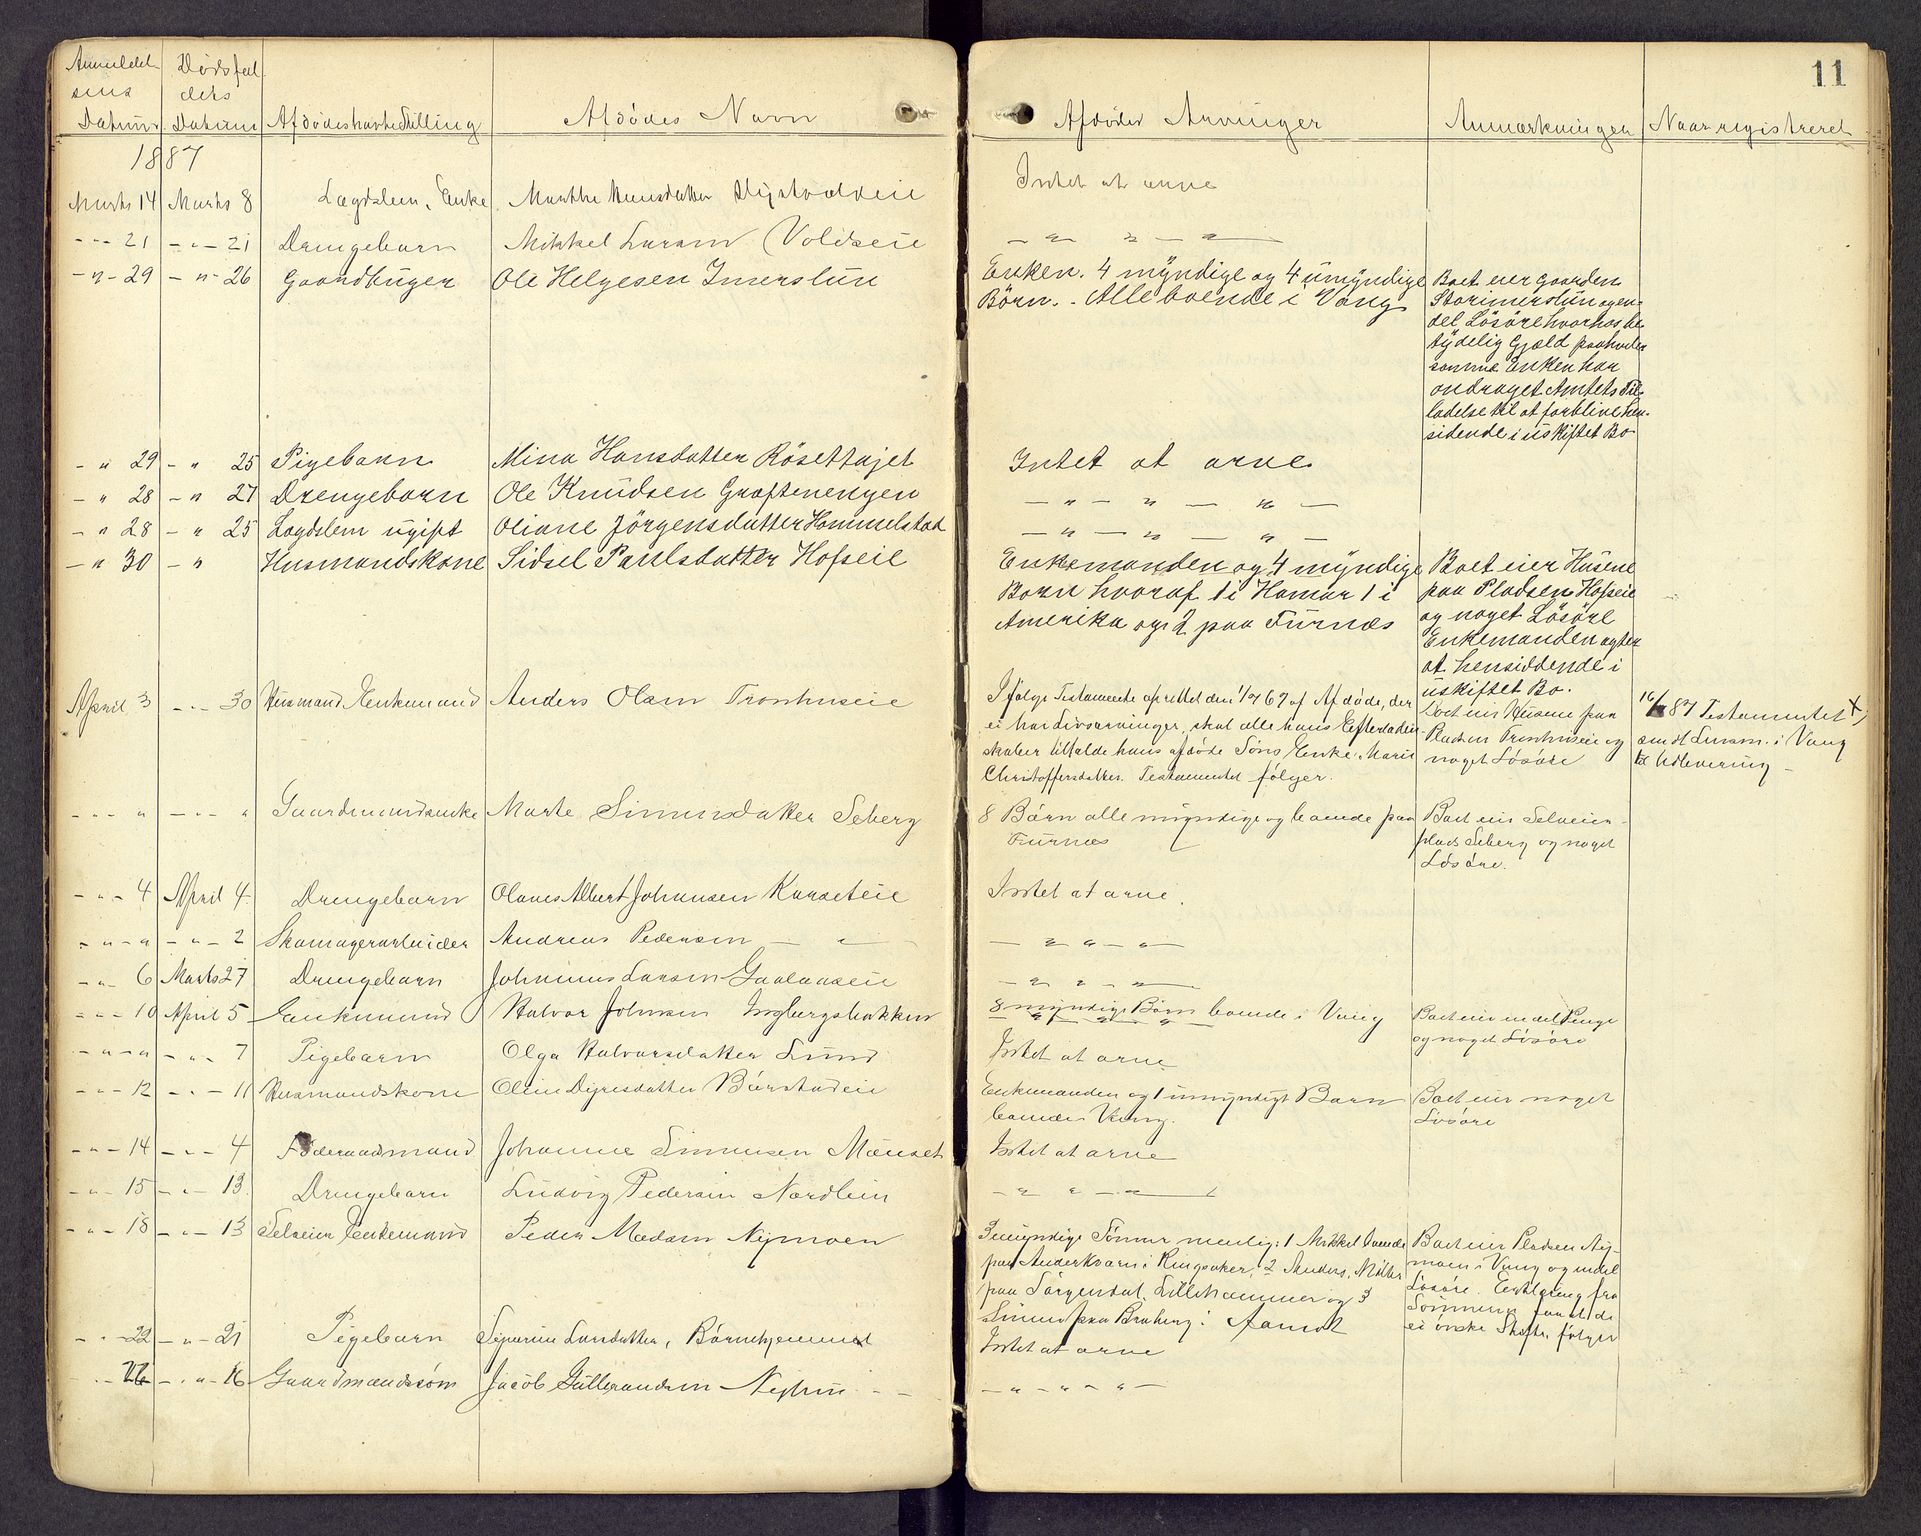 11
Anmeldel-
sens
Datum
Dødsfal-
dets
Datum
Afdødes Navn
Afdødes Arvinger
Anmærkninger
Naar registreret
1887
Marts 14 Marts 8 Lægdslem, Enke Marthe Hansdatter Intet at arve
-"- 21 -"- 21 Drengebarn Mikkel Larsen Voldseie - " " - " -
-"- 29 -"- 26 Gaardbruger Ole Helgesen Imerslun Enken. 4 myndige og 4 umyndige
Børn. - Alle boende i Vang
Boet eier gaarden
Storimerslun og en
del Løsøre hvorhos be-
tydelig Gjæld paahviler
samme Enken har
andraget Amtets Til-
ladelse til at forblive hen-
sidende i uskiftet Bo
- " 29 - " 25 Pigebarn Mina Hansdatter Røsettajet Intet at arve
- " 28 - " 27 Drengebarn Ole Knudsen Grøftenengen - " - " - " -
- " 28 - " 25 Lægdslem ugift Oliane Jørgensdatter Hommelstad - " - " - " -
- " 30 - " Husmandskone Sidsel Paulsdatter Hofseie Enkemanden og 4 myndige
Børn hvoraf 1 i Hamar 1 i
Amerika og 2 paa Furnæs
Boet eier Husene
paa Pladsen Hofseie
og noget Løsøre
Enkemanden agter
at hensiddende i
uskiftet Bo.
April 3 -"- 30 Husmand Enkemand Anders Olsen Tronhuseie
I følge Testamente oprettet den 1/7 67 af Afdøde, der
ei har Livsarvinger, skal alle hans Efterladen-
skaber tilfalde hans afdøde Søns Enke, Marie
Christoffersdatter. Testamentet følger.
Boet eier Husene paa
Pladsen Tronhuseie og
noget Løsøre
87 Testamentet
sendt Lensm. i Vang
til Udlevering -
-"- " -"- " Gaardmandsenke Marte Simensdatter Seberg 8 Børn alle myndige og boende paa
Furnæs
Boet eier Selveier-
plads Seberg og noget
Løsøre.
-"- 4 April 4 Drengebarn Olaves Albert Johansen Karseteie Intet at arve.
-"- " -"- 2 Skomagerarbeider Andreas Pedersen - " - - " " - " -
-"- 6 Marts 27 Drengebarn Johannes Larsen Gaalaaseie - " " - " -
-"- 10 April 5 Enkemand Halvor Johnsen Ingbergsbakken 8 myndige Børn boende i Vang
Boet eier en del Penge
og noget Løsøre
-"- " -"- 7 Pigebarn Olga Halvorsdatter Lund Intet at arve
-"- 12 -"- 11 Husmandskone Oline Dyresdatter Børstadeie Enkemanden og 1 umyndigt Barn
boende i Vang.
Boet eier noget
Løsøre
-"- 14 -"- 4 Føderaadmand Johannes Simensen Intet at arve
-"- 15 -"- 13 Drengebarn Ludvig Pedersen - " " - " -
-"- 18 -"- 13 Selveier Enkemand Peder Madsen Nymoen
3 myndige Sønner nemlig: 1 Mikkel boende
paa Anderkværn i Ringsaker, 2 Anders, Møller
paa Sørgendal, Lillehammer og 3
Simen paa Braberg i
Boet eier Pladsen Ny-
moen i Vang og endel
Løsøre. Erklæring fra
Sønnerne paa at de
ei ønske Skifte, følger
-"- 22 -"- 21 Pigebarn Larsdatter, Børnehjemmet Intet at arve
-"- 26 -"- 16 Gaardmandssøn Jacob Gulbrandsen - " - " - " -